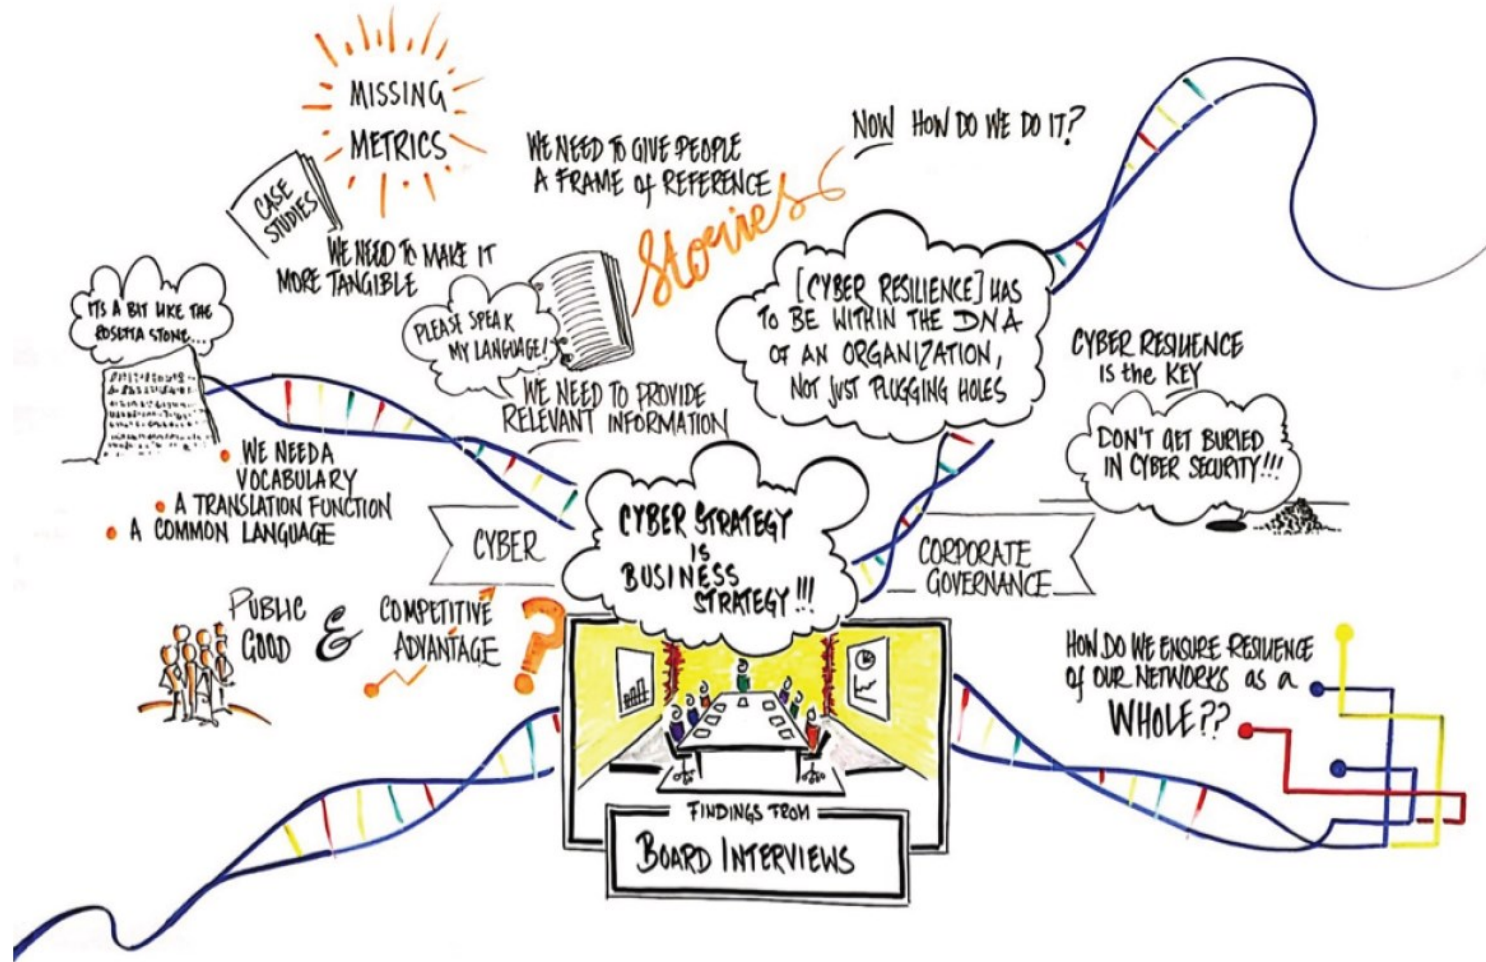 MISSING
METRICS
CASE
STUDIES
WE NEED TO MAKE IT
MORE TANGIBLE
WE NEED TO GIVE PEOPLE
A FRAME of REFERENCE
Stories
NOW HOW DO WE DO IT?
IT'S A BIT LIKE THE
ROSETTA STONE...
PLEASE SPEAK
MY LANGUAGE!
WE NEED TO PROVIDE
RELEVANT INFORMATION
[CYBER RESILIENCE] HAS
TO BE WITHIN THE DNA
OF AN ORGANIZATION,
NOT JUST PLUGGING HOLES
CYBER RESILIENCE
IS the KEY
DON'T GET BURIED
IN CYBER SECURITY!!!
WE NEED A
VOCABULARY
A TRANSLATION FUNCTION
A COMMON LANGUAGE
CYBER
CYBER STRATEGY
IS
BUSINESS
STRATEGY!!!
CORPORATE
GOVERNANCE
PUBLIC
GOOD
&
COMPETITIVE
ADVANTAGE
?
HOW DO WE ENSURE RESILIENCE
of OUR NETWORKS as a
WHOLE??
FINDINGS FROM
BOARD INTERVIEWS